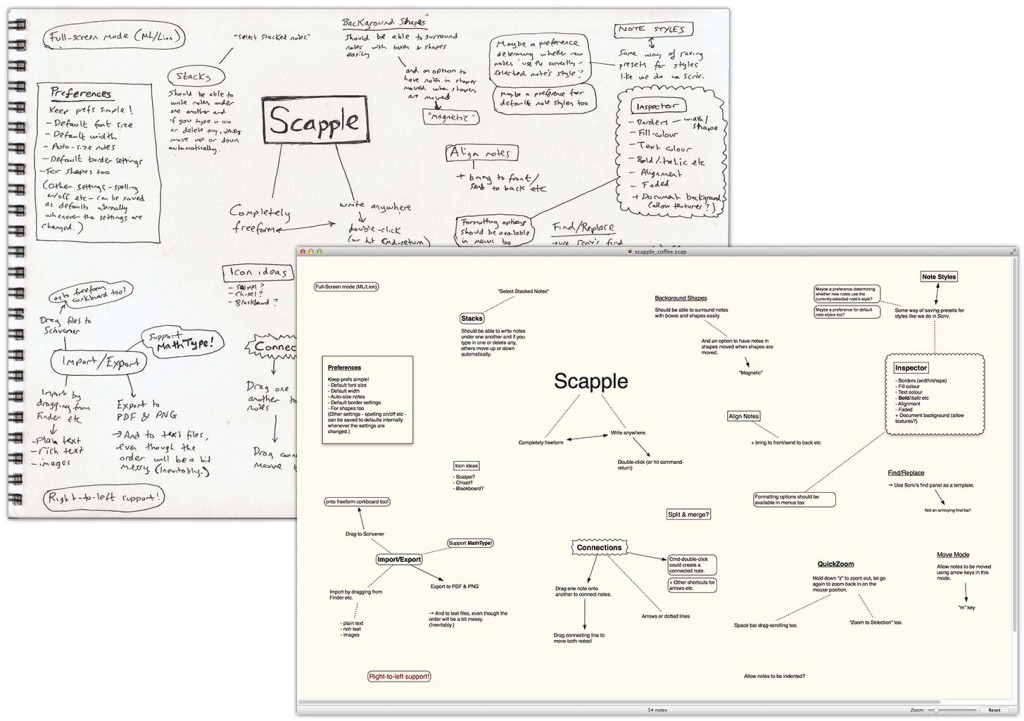 Full-screen mode (ML/Lion)
"Select stacked notes"
Stacks
Should be able to
write notes under
one another and
if you type in one
or delete any, others
move up or down
automatically.
Preferences
Keep prefs simple!
- Default font size
- Default width
- Auto-size notes
- Default border settings
- For shapes too
(Other settings - spelling
on/off etc - can be saved
as defaults internally
whenever the settings are
changed.)
Background Shapes
Should be able to surround
notes with boxes & shapes
easily
and an option to
have notes in shapes
moved when shapes
are moved
"Magnetic"
Maybe a preference
determining whether new
notes use the currently-
selected note's style?
Maybe a preference for
default note styles too
NOTE STYLES
Some way of saving
presets for styles
like we do in Scriv.
Inspector
- Borders - width/
shape
- Fill-colour
- Text colour
- Bold/italic etc
- Alignment
- Faded
+ Document background
(allow textures?)
Scapple
Completely
freeform
write anywhere
double-click
(or hit cmd-return)
Align notes
+ bring to front/
send to back etc
Formatting options
should be available
in menus too
Find/Replace
- use Scriv's find
Icon ideas
- Scalpel?
- Chisel?
- Blackboard?
onto freeform
corkboard too!
Drag files to
Scrivener
Support
MathType!
Import/Export
Import by
dragging from
Finder etc
- plain text
- rich text
- images
Export to
PDF & PNG
→ And to text files,
even though the
order will be a bit
messy (Inevitably.)
Right-to-left support!
Connec
Drag one
another to
notes
Drag conn
move t
scapple_coffee.scap
Full-Screen mode (ML/Lion)
"Select Stacked Notes"
Stacks
Should be able to write notes
under one another and if you
type in one or delete any,
others move up or down
automatically.
Preferences
Keep prefs simple!
- Default font size
- Default width
- Auto-size notes
- Default border settings
- For shapes too
(Other settings - spelling on/off etc -
can be saved to defaults internally
whenever the settings are
changed.)
Background Shapes
Should be able to surround notes
with boxes and shapes easily.
And an option to have notes in
shapes moved when shapes are
moved.
"Magnetic"
Maybe a preference determining
whether new notes use the
currently-selected note's style?
Maybe a preference for default
note styles too?
Note Styles
Some way of saving presets for
styles like we do in Scriv.
Inspector
- Borders (width/shape)
- Fill colour
- Text colour
- Bold/italic etc
- Alignment
- Faded
+ Document background (allow
textures?)
Scapple
Completely freeform
Write anywhere.
Double-click (or hit command-
return)
Align Notes
+ bring to front/send to back etc
Icon ideas
- Scalpel?
- Chisel?
- Blackboard?
Formatting options should be
available in menus too
Find/Replace
→ Use Scriv's find panel as a template.
Not an annoying find bar!
Split & merge?
onto freeform corkboard too!
Drag to Scrivener
Support MathType!
Import/Export
Import by dragging from
Finder etc.
- plain text
- rich text
- images
Export to PDF & PNG
→ And to text files, even though the
order will be a bit messy.
(Inevitably.)
Right-to-left support!
Connections
Cmd-double-click
could create a
connected note.
+ Other shortcuts for
arrows etc.
Drag one note onto
another to connect notes.
Arrows or dotted lines.
Drag connecting line to
move both notes!
QuickZoom
Hold down "z" to zoom out, let go
again to zoom back in on the
mouse position.
Space bar drag-scrolling too.
"Zoom to Selection" too.
Move Mode
Allow notes to be moved
using arrow keys in this
mode.
"m" key
Allow notes to be indented?
54 notes
Zoom:
Reset